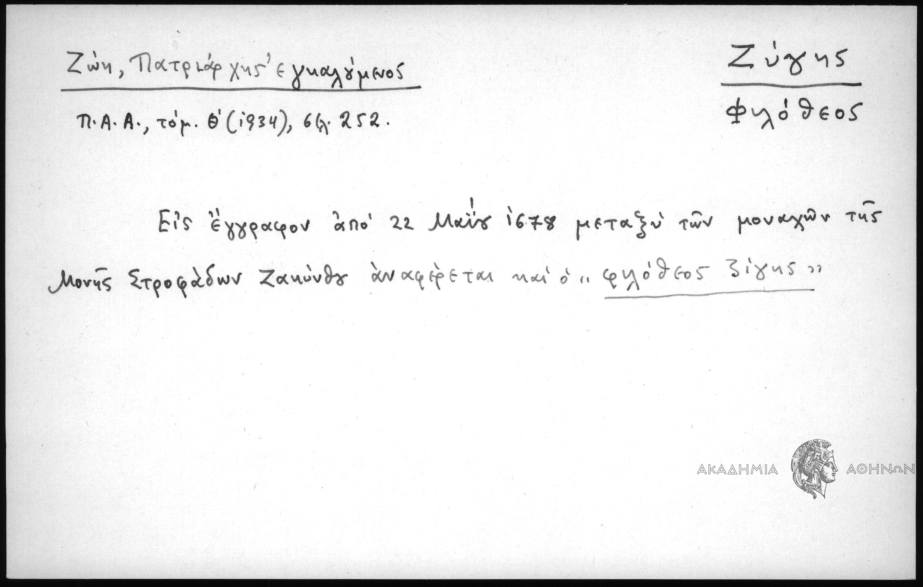 Ζώη, Πατριάρχης ἐγκαλούμενος
Π.Α.Α., τόμ. Θ' (1934), σελ. 252.
Ζύγης
Φιλόθεος
Εἰς ἔγγραφον ἀπό 22 Μαΐου 1678 μεταξύ τῶν μοναχῶν τῆς
Μονῆς Στροφάδων Ζακύνθου ἀναφέρεται καί ὁ „ φιλόθεος ζίγης "
ΑΚΑΔΗΜΙΑ ΑΘΗΝΩΝ